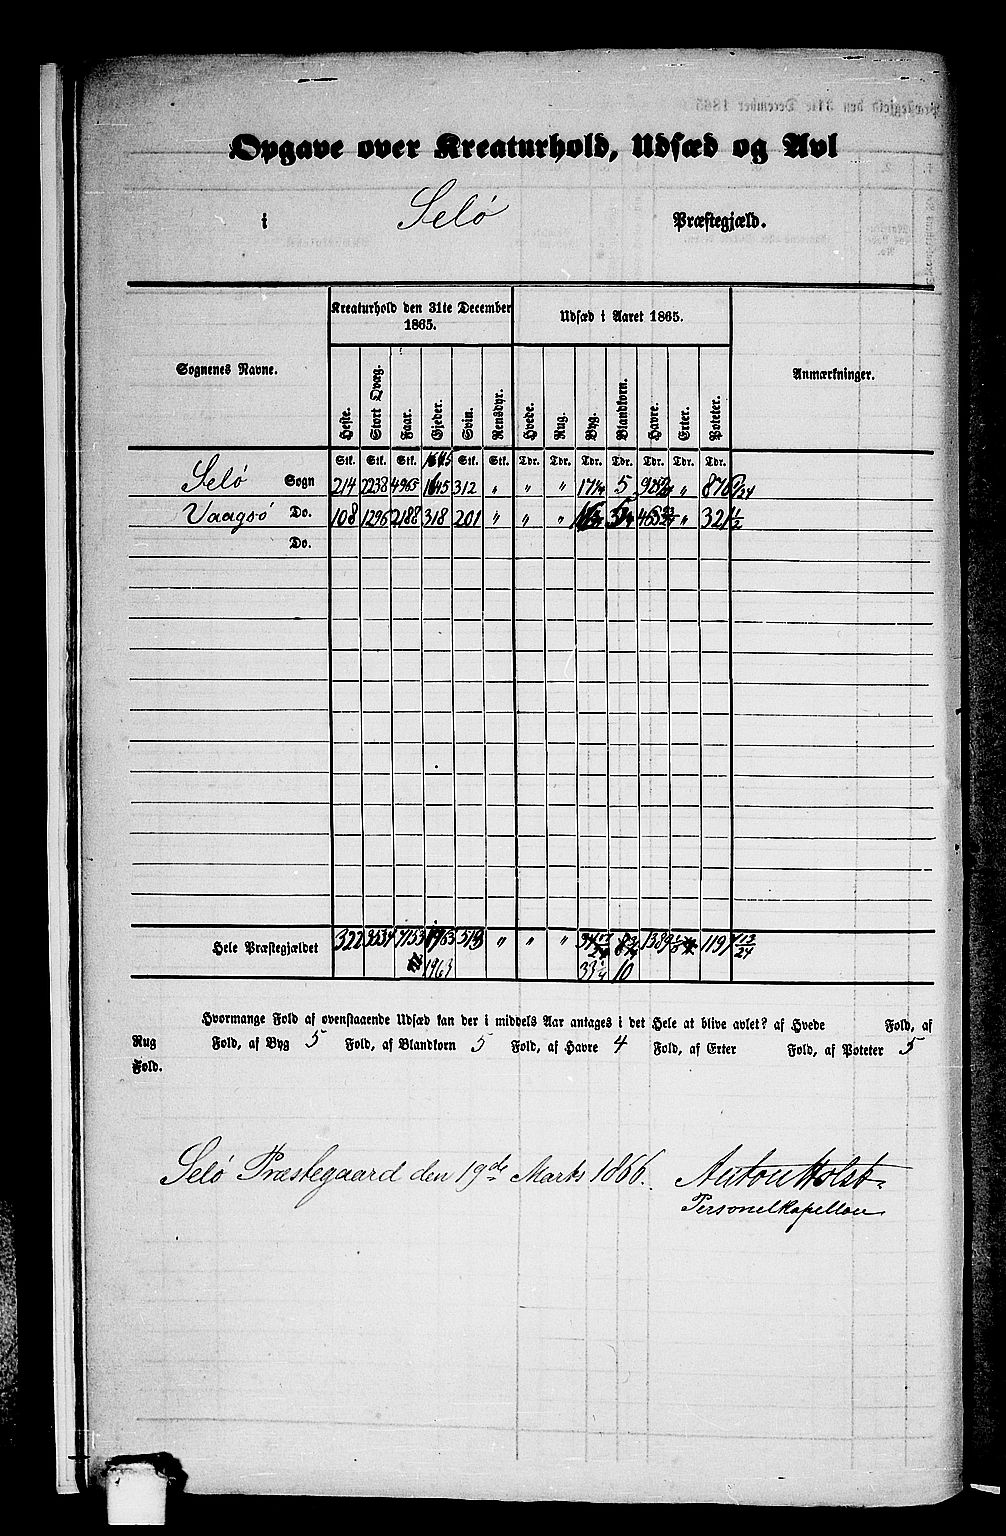 Opgave over Kreaturhold, Udsæd og Avl
i Selø Præstegjæld.
Kreaturhold den 31te December 1865. Udsæd i Aaret 1865.
Sognenes Navne. Heste. Stort Qvæg. Faar. Gjeder. Svin. Rensdyr. Hvede. Rug. Byg. Blandkorn. Havre. Erter. Poteter. Anmærkninger.
Stk. Stk. Stk. 1645 Stk. Stk. Tdr. Tdr. Tdr. Tdr. Tdr. Tdr. Tdr.
Selø Sogn 214 2238 4965 1645 312 " " " 17 5 " 876
Vaagsø Do. 108 1296 2188 318 201 " " " " 321 1/2
Do.
Hele Præstegjældet 322 3534 7153 1963 513 " " " 1197 13/24
1963 33 1/4 10
Hvormange Fold af ovenstaaende Udsæd kan der i middels Aar antages i det Hele at blive avlet? af Hvede Fold, af
Rug Fold, af Byg 5 Fold, af Blandkorn 5 Fold, af Havre 4 Fold, af Erter Fold, af Poteter 5
Fold.
Selø Præstegaard den 19de Marts 1866. Anton Holst.
Personelkapellan